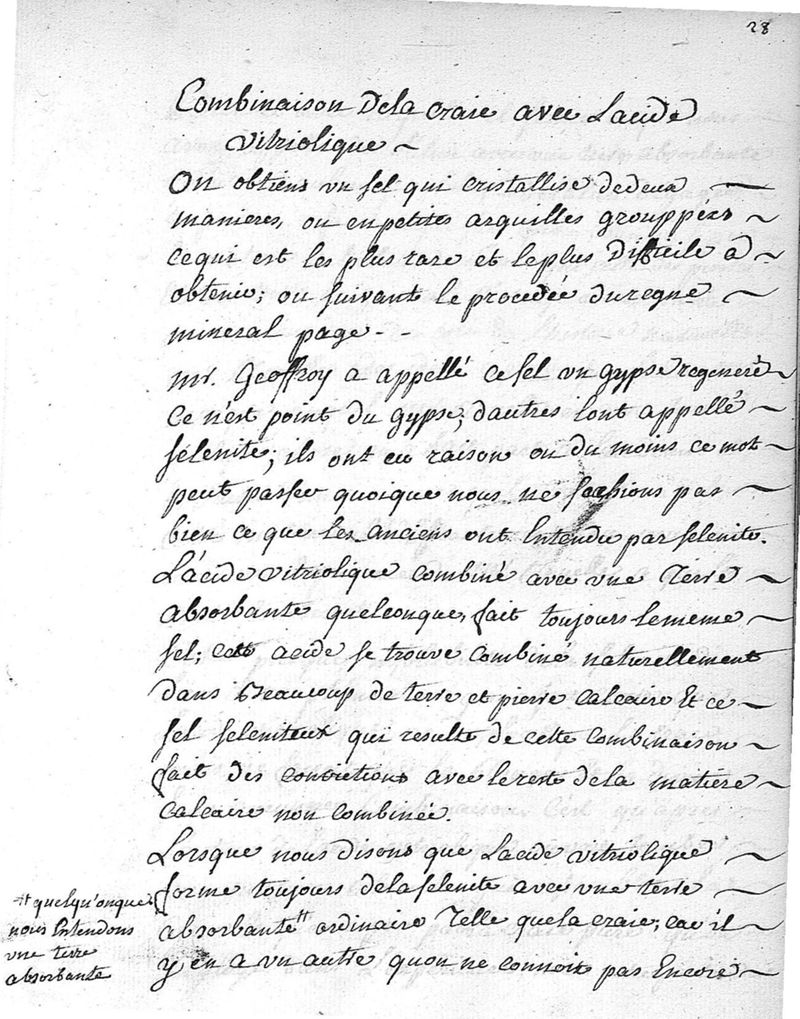 28
Combinaison de la craie avec Lacide
vitriolique ~
On obtiens un sel qui cristallise de deux
manieres, ou en petites arquilles grouppées ~
ce qui est les plus rare et le plus difficile a ~
obtenir; ou suivant le procedée du regne ~
mineral page - -
mr. Geoffroy a appellé ce sel un gypse regeneré ~
Ce n'est point du gypse; d'autres lont appellé ~
selenite; ils ont eu raison ou du moins ce mot ~
peut passer quoique nous ne sachions pas ~
bien ce que les anciens ont Entendu par selenite.
L'acide vitriolique combiné avec une Terre ~
absorbante quelconque, fait toujours le meme ~
sel; cet acide se trouve combiné naturellement
dans Beaucoup de terre et pierre calcaire Et ce ~
sel seleniteux qui resulte de cette combinaison ~
fait des concretions avec le reste de la matiere ~
calcaire non combinée.
Lorsque nous disons que Lacide vitriolique ~
forme toujours de la selenite avec une terre ~
absorbante " ordinaire Telle que la craie; car il ~
y en a un autre quon ne connoit pas Encore ~
" quelqu'onque
nous Entendons
une terre
absorbante